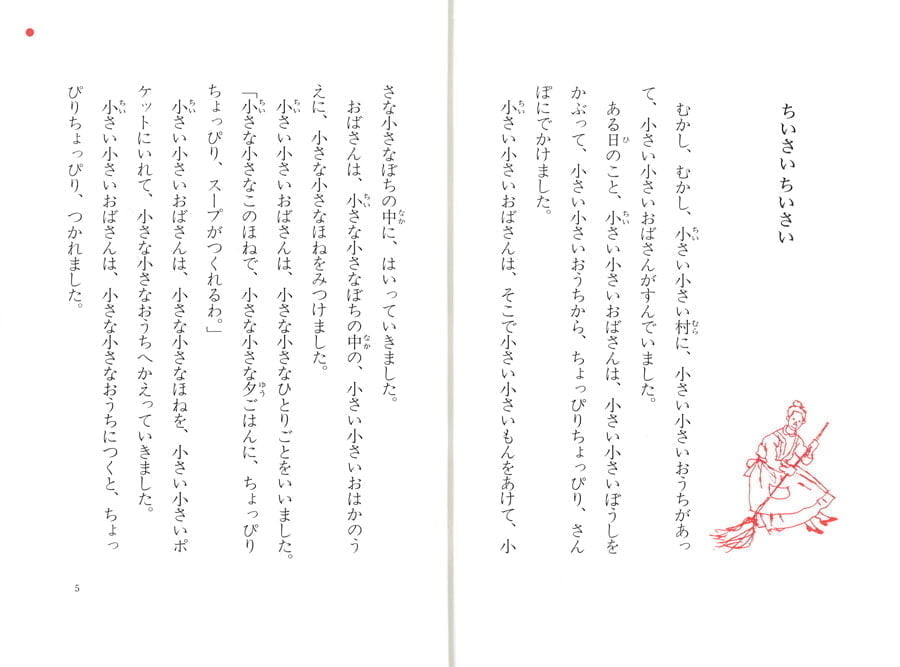 ちいさい ちいさい
むかし、むかし、小さい小さい村に、小さい小さいおうちがあっ
て、小さい小さいおばさんがすんでいました。
ある日のこと、小さい小さいおばさんは、小さい小さいぼうしを
かぶって、小さい小さいおうちから、ちょっぴりちょっぴり、さん
ぽにでかけました。
小さい小さいおばさんは、そこで小さい小さいもんをあけて、小
さな小さなぼちの中に、はいっていきました。
おばさんは、小さな小さなぼちの中の、小さい小さいおはかのう
えに、小さな小さなほねをみつけました。
小さい小さいおばさんは、小さな小さなひとりごとをいいました。
「小さな小さなこのほねで、小さな小さな夕ごはんに、ちょっぴり
ちょっぴり、スープがつくれるわ。」
小さい小さいおばさんは、小さな小さなほねを、小さい小さいポ
ケットにいれて、小さな小さなおうちへかえっていきました。
小さい小さいおばさんは、小さな小さなおうちにつくと、ちょっ
ぴりちょっぴり、つかれました。
5